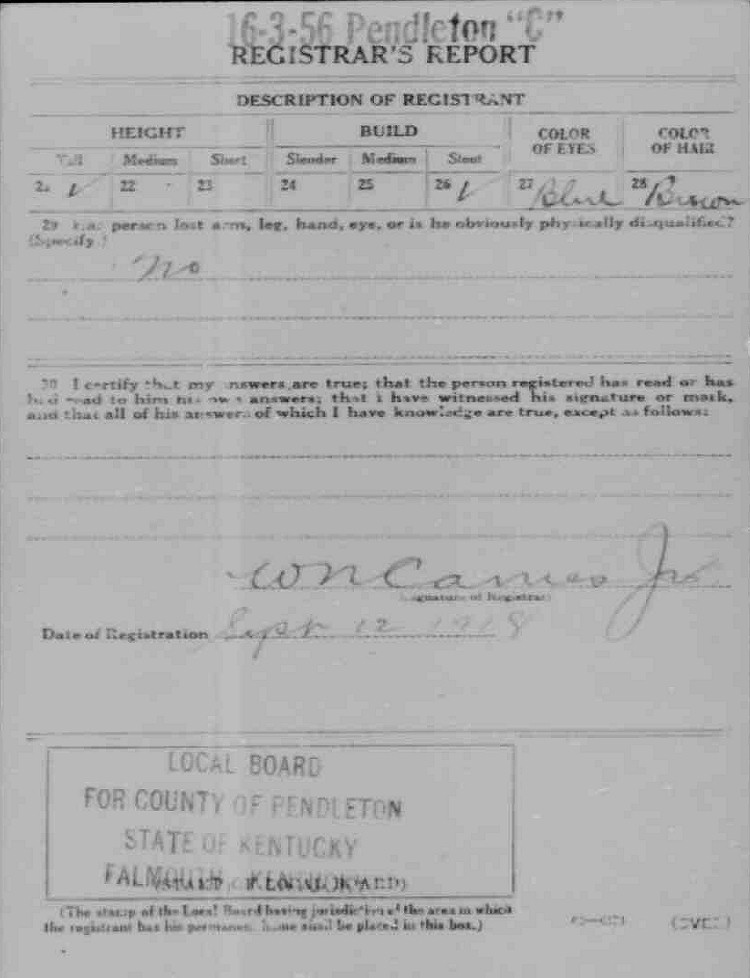 16-3-56 Pendleton "C"
REGISTRAR'S REPORT
DESCRIPTION OF REGISTRANT
HEIGHT BUILD COLOR OF EYES COLOR OF HAIR
Tall Medium Short Slender Medium Stout
21 ✓ 22 23 24 25 26 ✓ 27 Blue 28 Brown
29 Has person lost arm, leg, hand, eye, or is he obviously physically disqualified?
(Specify.)
No
30 I certify that my answers are true; that the person registered has read or has
had read to him his own answers; that I have witnessed his signature or mark,
and that all of his answers of which I have knowledge are true, except as follows:
W N Jr
(Signature of Registrar)
Date of Registration Sept 12 1918
LOCAL BOARD
FOR COUNTY OF PENDLETON
STATE OF KENTUCKY
FALMOUTH, KENTUCKY
(STAMP OF LOCAL BOARD)
(The stamp of the Local Board having jurisdiction of the area in which
the registrant has his permanent home shall be placed in this box.)
(OVER)